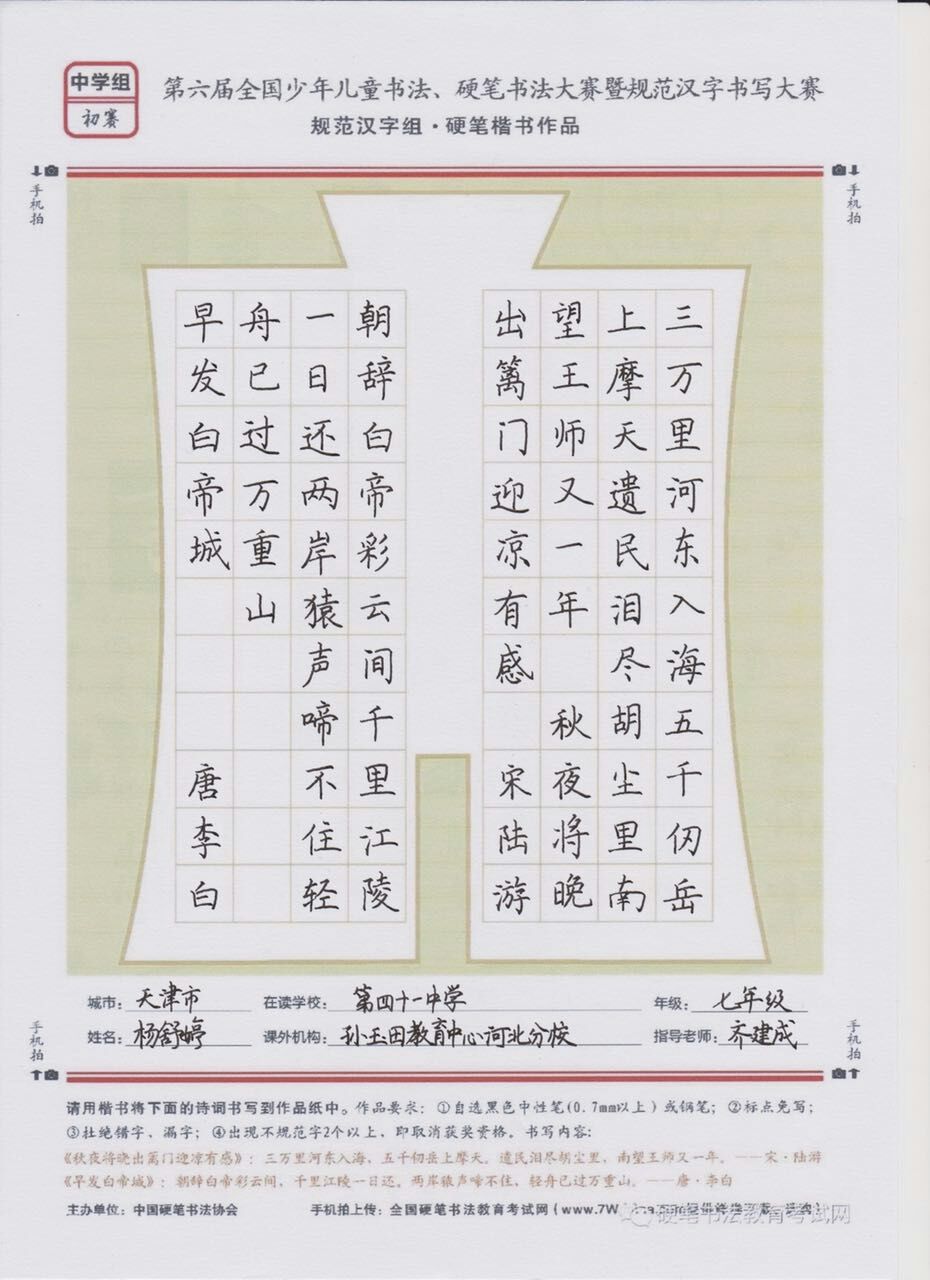 中学组
初赛
第六届全国少年儿童书法、硬笔书法大赛暨规范汉字书写大赛
规范汉字组·硬笔楷书作品
手机拍
手机拍
三万里河东入海五千仞岳
上摩天遗民泪尽胡尘里南
望王师又一年 秋夜将晚
出篱门迎凉有感 宋陆游
朝辞白帝彩云间千里江陵
一日还两岸猿声啼不住轻
舟已过万重山
早发白帝城 唐李白
城市：天津市 在读学校：第四十一中学 年级：七年级
姓名：杨舒婷 课外机构：孙玉田教育中心河北分校 指导老师：齐建成
手机拍
手机拍
请用楷书将下面的诗词书写到作品纸中。作品要求：①自选黑色中性笔(0.7mm以上）或钢笔；②标点免写；
③杜绝错字、漏字；④出现不规范字2个以上，即取消获奖资格。书写内容：
《秋夜将晓出篱门迎凉有感》：三万里河东入海，五千仞岳上摩天。遗民泪尽胡尘里，南望王师又一年。——宋·陆游
《早发白帝城》：朝辞白帝彩云间，千里江陵一日还。两岸猿声啼不住，轻舟已过万重山。——唐·李白
主办单位：中国硬笔书法协会 手机拍上传：全国硬笔书法教育考试网（www.7W
硬笔书法教育考试网